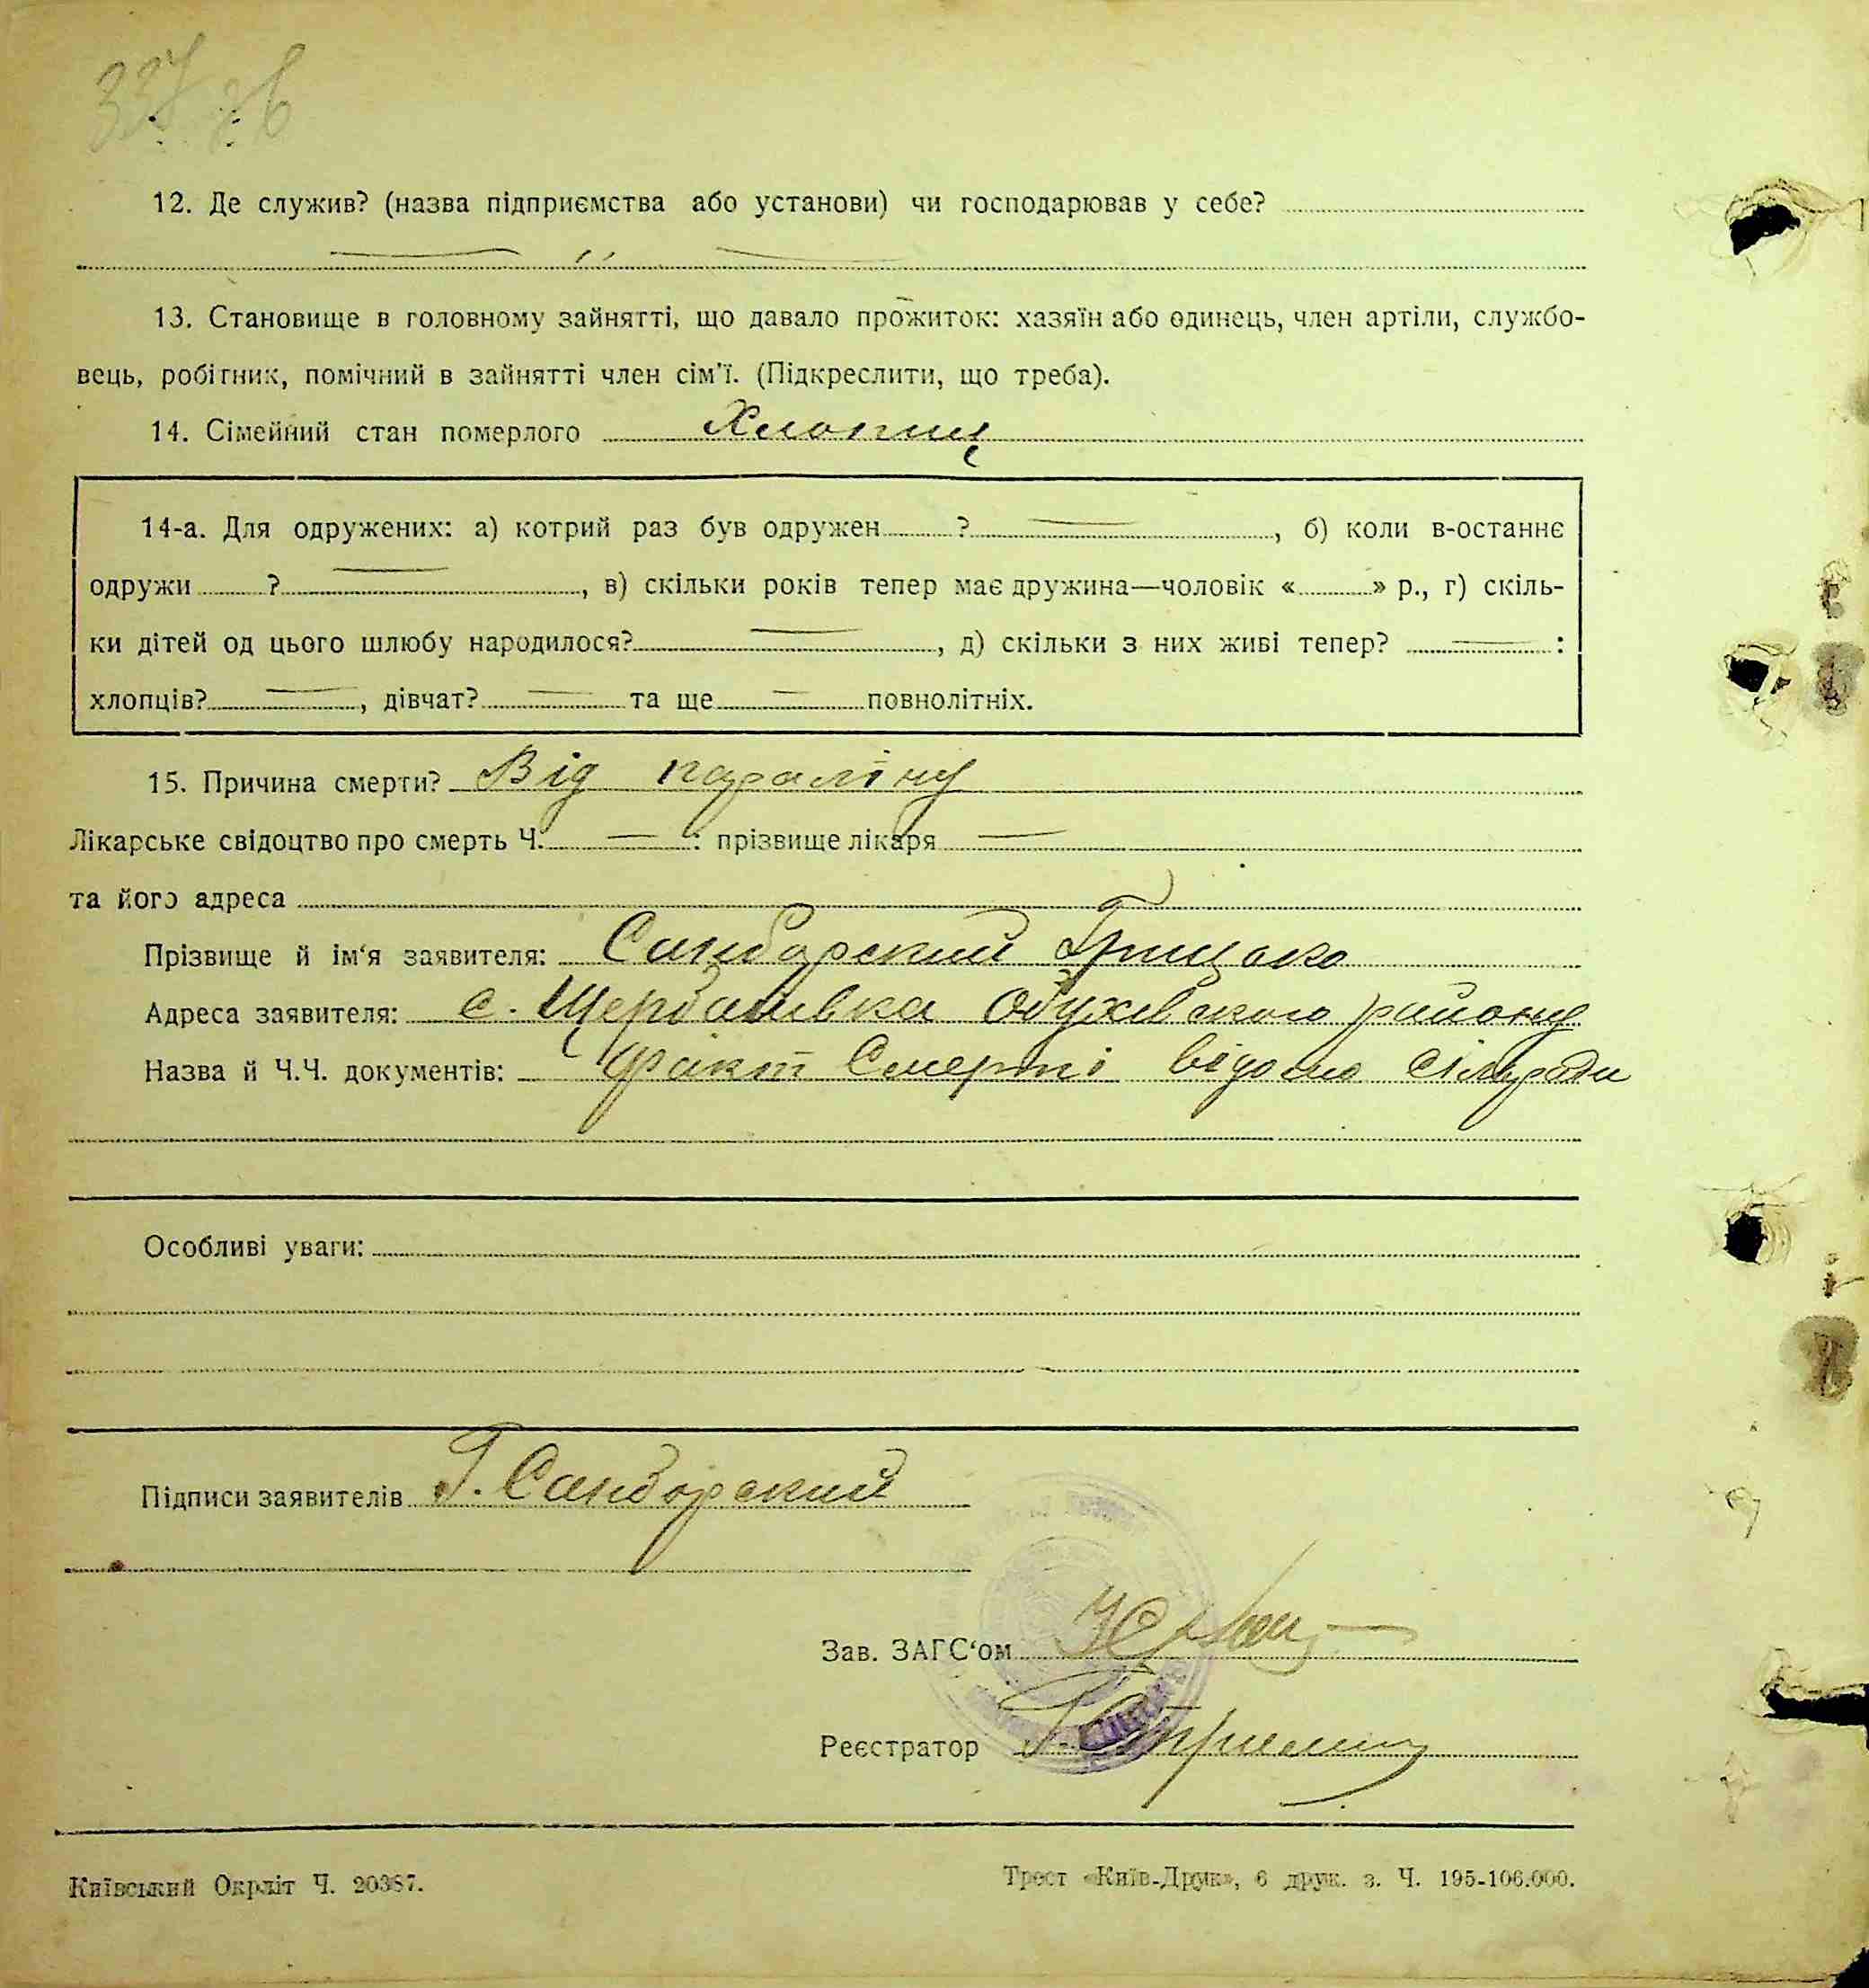 337 зв
12. Де служив? (назва підприємства або установи) чи господарював у себе?
— „ —
13. Становище в головному зайнятті, що давало прожиток: хазяїн або одинець, член артіли, службо-
вець, робітник, помічний в зайнятті член сім'ї. (Підкреслити, що треба).
14. Сімейний стан померлого Хлопиц
14-а. Для одружених: а) котрий раз був одружен ? —, б) коли в-останнє
одружи ? —, в) скільки років тепер має дружина—чоловік « » р., г) скіль-
ки дітей од цього шлюбу народилося? —, д) скільки з них живі тепер? — :
хлопців? —, дівчат? — та ще — повнолітніх.
15. Причина смерти? Від паралічу
Лікарське свідоцтво про смерть Ч. — : прізвище лікаря —
та його адреса
Прізвище й ім'я заявителя: Санборский Грицько
Адреса заявителя: с. Щербанівка Обухівського району
Назва й Ч.Ч. документів: Факт Смерті відомо сільради
Особливі уваги:
Підписи заявителів Г. Санборский
Зав. ЗАГС'ом
Реєстратор
Київський Окрліт Ч. 20387.
Трест «Київ-Друк», 6 друк. з. Ч. 195-106.000.